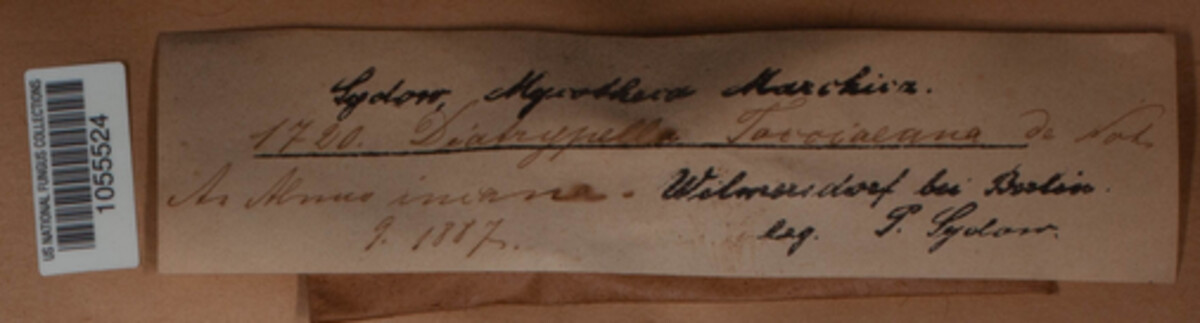 US NATIONAL FUNGUS COLLECTIONS
1055524
Sydow, Mycotheca Marchica.
1720. Diatrypella Tocciaeana de Not.
An Alnus incana.
Wilmersdorf bei Berlin.
9. 1887.
leg. P. Sydow.